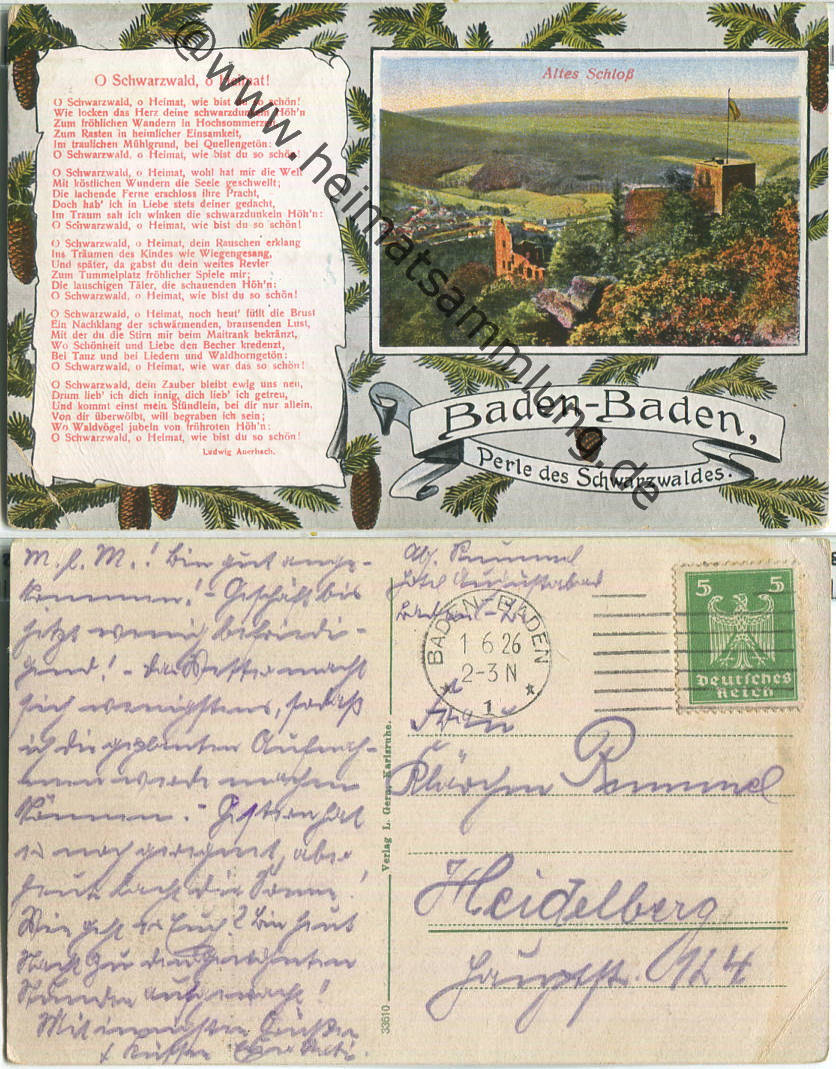 O Schwarzwald, o Heimat!
O Schwarzwald, o Heimat, wie bist du so schön!
Wie locken das Herz deine schwarzdunkeln Höh'n
Zum fröhlichen Wandern in Hochsommerzeit,
Zum Rasten in heimlicher Einsamkeit,
Im traulichen Mühlgrund, bei Quellengetön:
O Schwarzwald, o Heimat, wie bist du so schön!
O Schwarzwald, o Heimat, wohl hat mir die Welt
Mit köstlichen Wundern die Seele geschwellt;
Die lachende Ferne erschloss ihre Pracht,
Doch hab' ich in Liebe stets deiner gedacht,
Im Traum sah ich winken die schwarzdunkeln Höh'n:
O Schwarzwald, o Heimat, wie bist du so schön!
O Schwarzwald, o Heimat, dein Rauschen erklang
Ins Träumen des Kindes wie Wiegengesang,
Und später, da gabst du dein weites Revier
Zum Tummelplatz fröhlicher Spiele mir;
Die lauschigen Täler, die schauenden Höh'n:
O Schwarzwald, o Heimat, wie bist du so schön!
O Schwarzwald, o Heimat, noch heut' füllt die Brust
Ein Nachklang der schwärmenden, brausenden Lust,
Mit der du die Stirn mir beim Maitrank bekränzt,
Wo Schönheit und Liebe den Becher kredenzt,
Bei Tanz und bei Liedern und Waldhorngetön:
O Schwarzwald, o Heimat, wie war das so schön!
O Schwarzwald, dein Zauber bleibt ewig uns neu,
Drum lieb' ich dich innig, dich lieb' ich getreu,
Und kommt einst mein Stündlein, bei dir nur allein,
Von dir überwölbt, will begraben ich sein;
Wo Waldvögel jubeln von frühroten Höh'n:
O Schwarzwald, o Heimat, wie bist du so schön!
Ludwig Auerbach.
Altes Schloß
Baden-Baden,
Perle des Schwarzwaldes.
@www.heimatsammlung.de
M. l. M.! Bin gut ange-
kommen! - Geschäft bis
jetzt wenig befriedi-
gend! - Das Wetter macht
sich wenigstens, sodaß
ich die geplanten Aufnah-
men werde machen
können. - Gestern hat
es noch geregnet, aber
heute lacht die Sonne!
Wie geht es Euch? Bin heut
Nacht zu den gewohnten
Stunden aufgewacht!
Mit innigsten Grüßen
& Küssen
Abs. Rummel
Hotel Augustabad
Baden-B.
BADEN-BADEN
1 6 26
2-3 N
* 1 *
5 5
Deutsches
Reich
Verlag L. Gern, Karlsruhe.
33610
Frau
Klärchen Rummel
Heidelberg
Hauptstr. 124